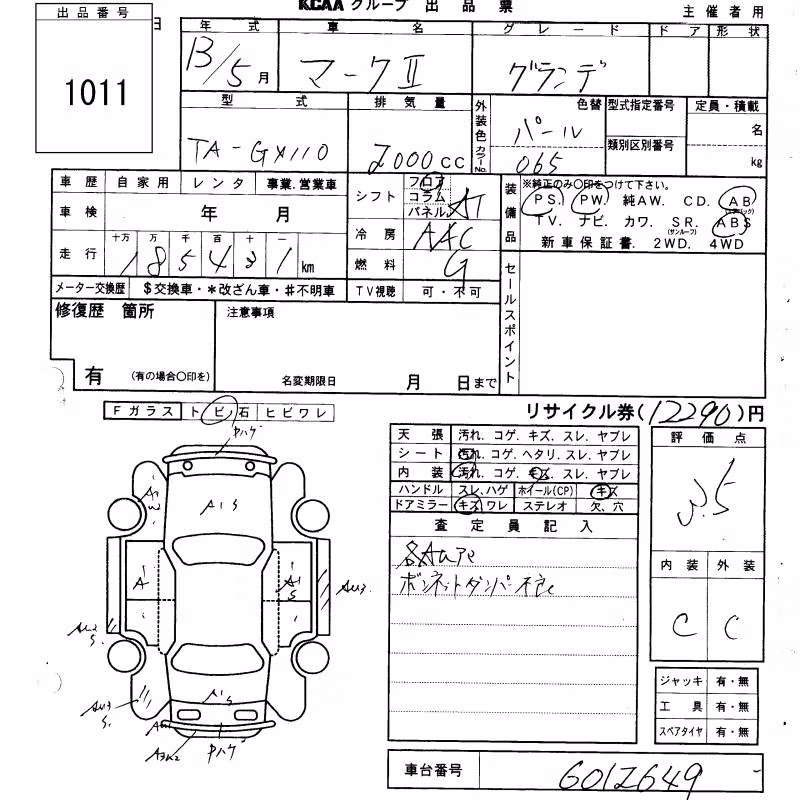 KCAA グループ 出品票 主催者用
出品番号
1011
日
年式 車名 グレード ドア 形状
13/5月 マークⅡ グランデ
型式 排気量 外装色 色替 型式指定番号 定員・積載
TA-GX110 2000cc カラーNo. パール 065 類別区別番号 名 kg
車歴 自家用 レンタ 事業.営業車
シフト フロア コラム パネル AT
装備品 ※純正のみ〇印をつけて下さい。
PS. PW. 純AW. CD. AB
(エアバック)
TV. ナビ. カワ. SR. ABS
(サンルーフ)
新車保証書. 2WD. 4WD
車検 年 月
冷房 AAC
走行 十万 万 千 百 十 一
185431km
燃料 G
メーター交換歴 $交換車・*改ざん車・#不明車 TV視聴 可・不可
セールスポイント
修復歴 箇所 注意事項
有 (有の場合〇印を)
名変期限日 月 日まで
リサイクル券(12290)円
Fガラス トビ石 ヒビワレ
Pハゲ
A1S
A
A1S
AU3.
AU2
S.
AU3
S.
A1S
Pハゲ
天張 汚れ. コゲ. キズ. スレ. ヤブレ
シート 汚れ. コゲ. ヘタリ. スレ. ヤブレ
内装 汚れ. コゲ. キズ. スレ. ヤブレ
ハンドル スレ.ハゲ ホイール(CP) キズ
ドアミラー キズ ワレ ステレオ 欠. 穴
査定員記入
ボンネットダンパー不良
評価点
3.5
内装 外装
C C
ジャッキ 有・無
工具 有・無
スペアタイヤ 有・無
車台番号 6012649